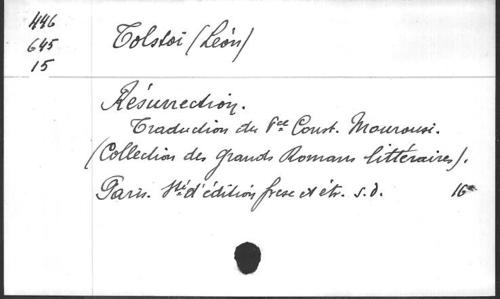 446
645
15
Tolstoï (Léon)
Résurrection.
Traduction du Pce Const. Mourousi.
(Collection des grands Romans littéraires).
Paris. Sté d'édition frse et étr. s.d. 16º